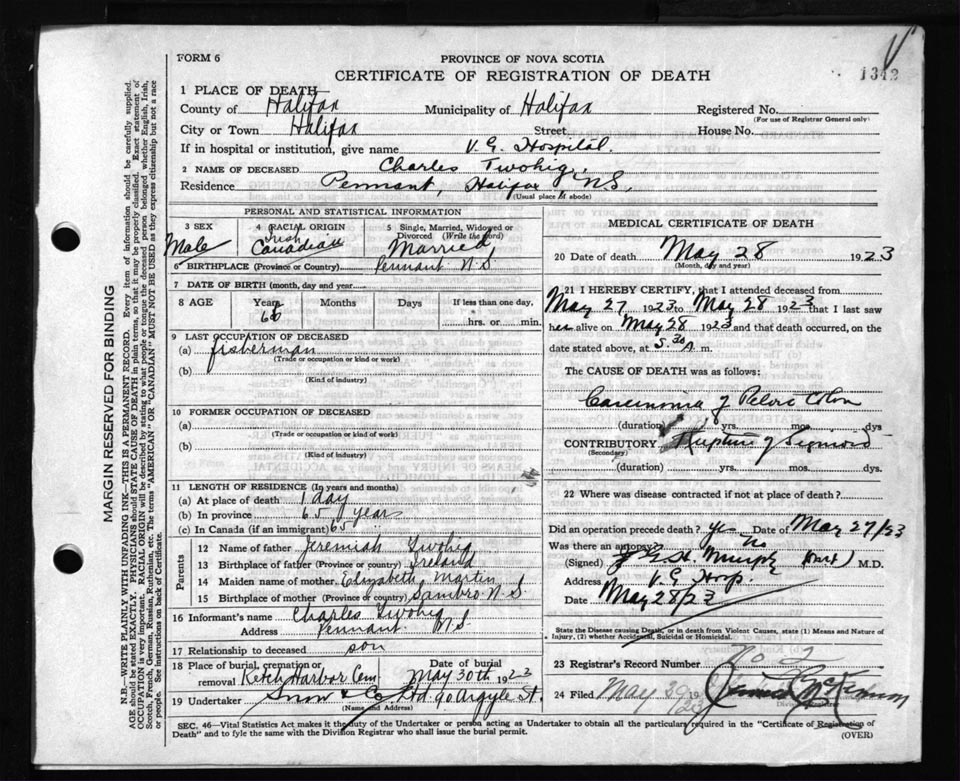 1342
FORM 6
PROVINCE OF NOVA SCOTIA
CERTIFICATE OF REGISTRATION OF DEATH
1 PLACE OF DEATH
County of Halifax Municipality of Halifax Registered No.
(For use of Registrar General only)
City or Town Halifax Street House No.
If in hospital or institution, give name V. G. Hospital.
2 NAME OF DECEASED Charles Twohig.
Residence Pennant, Halifax, N.S.
(Usual place of abode)
PERSONAL AND STATISTICAL INFORMATION
3 SEX
Male
4 RACIAL ORIGIN
Irish
Canadian
5 Single, Married, Widowed or Divorced (Write the word)
Married
6 BIRTHPLACE (Province or Country) Pennant N.S.
7 DATE OF BIRTH (month, day and year)
8 AGE Years Months Days If less than one day,
hrs. or min.
9 LAST OCCUPATION OF DECEASED
(a) fisherman
(Trade or occupation or kind or work)
(b)
(Kind of industry)
10 FORMER OCCUPATION OF DECEASED
(a)
(Trade or occupation or kind of work)
(b)
(Kind of industry)
11 LENGTH OF RESIDENCE (In years and months)
(a) At place of death 1 day
(b) In province 65 years
(c) In Canada (if an immigrant) 65 "
Parents
12 Name of father Jeremiah Twohig
13 Birthplace of father (Province or country) Ireland
14 Maiden name of mother Elizabeth Martin
15 Birthplace of mother (Province or country) Sambro N.S.
16 Informant's name Charles Twohig
Address Pennant N.S
17 Relationship to deceased son
18 Place of burial, cremation or removal Ketch Harbor Cem
Date of burial
May 30th 1923
19 Undertaker Snow & Co Ltd 90 Argyle St.
(Name and Address)
MEDICAL CERTIFICATE OF DEATH
20 Date of death May 28 1923
(Month, day and year)
21 I HEREBY CERTIFY, that I attended deceased from
May 27 1923 to May 28 1923 that I last saw
h alive on May 28 1923 and that death occurred, on the
date stated above, at 5.30 A. m.
The CAUSE OF DEATH was as follows:
Carcinoma of Pelvic Colon
(duration) yrs. mos. dys
CONTRIBUTORY Rupture of Sigmoid
(Secondary)
(duration) yrs. mos. dys.
22 Where was disease contracted if not at place of death?
Did an operation precede death? yes Date of May 27/23
Was there an autopsy? No
(Signed) Murphy M.D.
Address V. G Hosp.
Date May 28/23
State the Disease causing Death, or in death from Violent Causes, state (1) Means and Nature of
Injury, (2) whether Accidental, Suicidal or Homicidal.
23 Registrar's Record Number
24 Filed May 29 1923
SEC. 46—Vital Statistics Act makes it the duty of the Undertaker or person acting as Undertaker to obtain all the particulars required in the "Certificate of Registration of
Death" and to fyle the same with the Division Registrar who shall issue the burial permit.
(OVER)
MARGIN RESERVED FOR BINDING
N.B.—WRITE PLAINLY WITH UNFADING INK—THIS IS A PERMANENT RECORD. Every item of information should be carefully supplied.
AGE should be stated EXACTLY. PHYSICIANS should STATE CAUSE OF DEATH in plain terms, so that it may be properly classified. Exact statement of
OCCUPATION is very important. RACIAL ORIGIN will be described by stating to what people or tongue the deceased person belonged whether English, Irish,
Scotch, French, German, Russian, Ruthenian, etc. The terms "AMERICAN" OR "CANADIAN" MUST NOT BE USED as they express citizenship but not a race
or people. See instructions on back of Certificate.